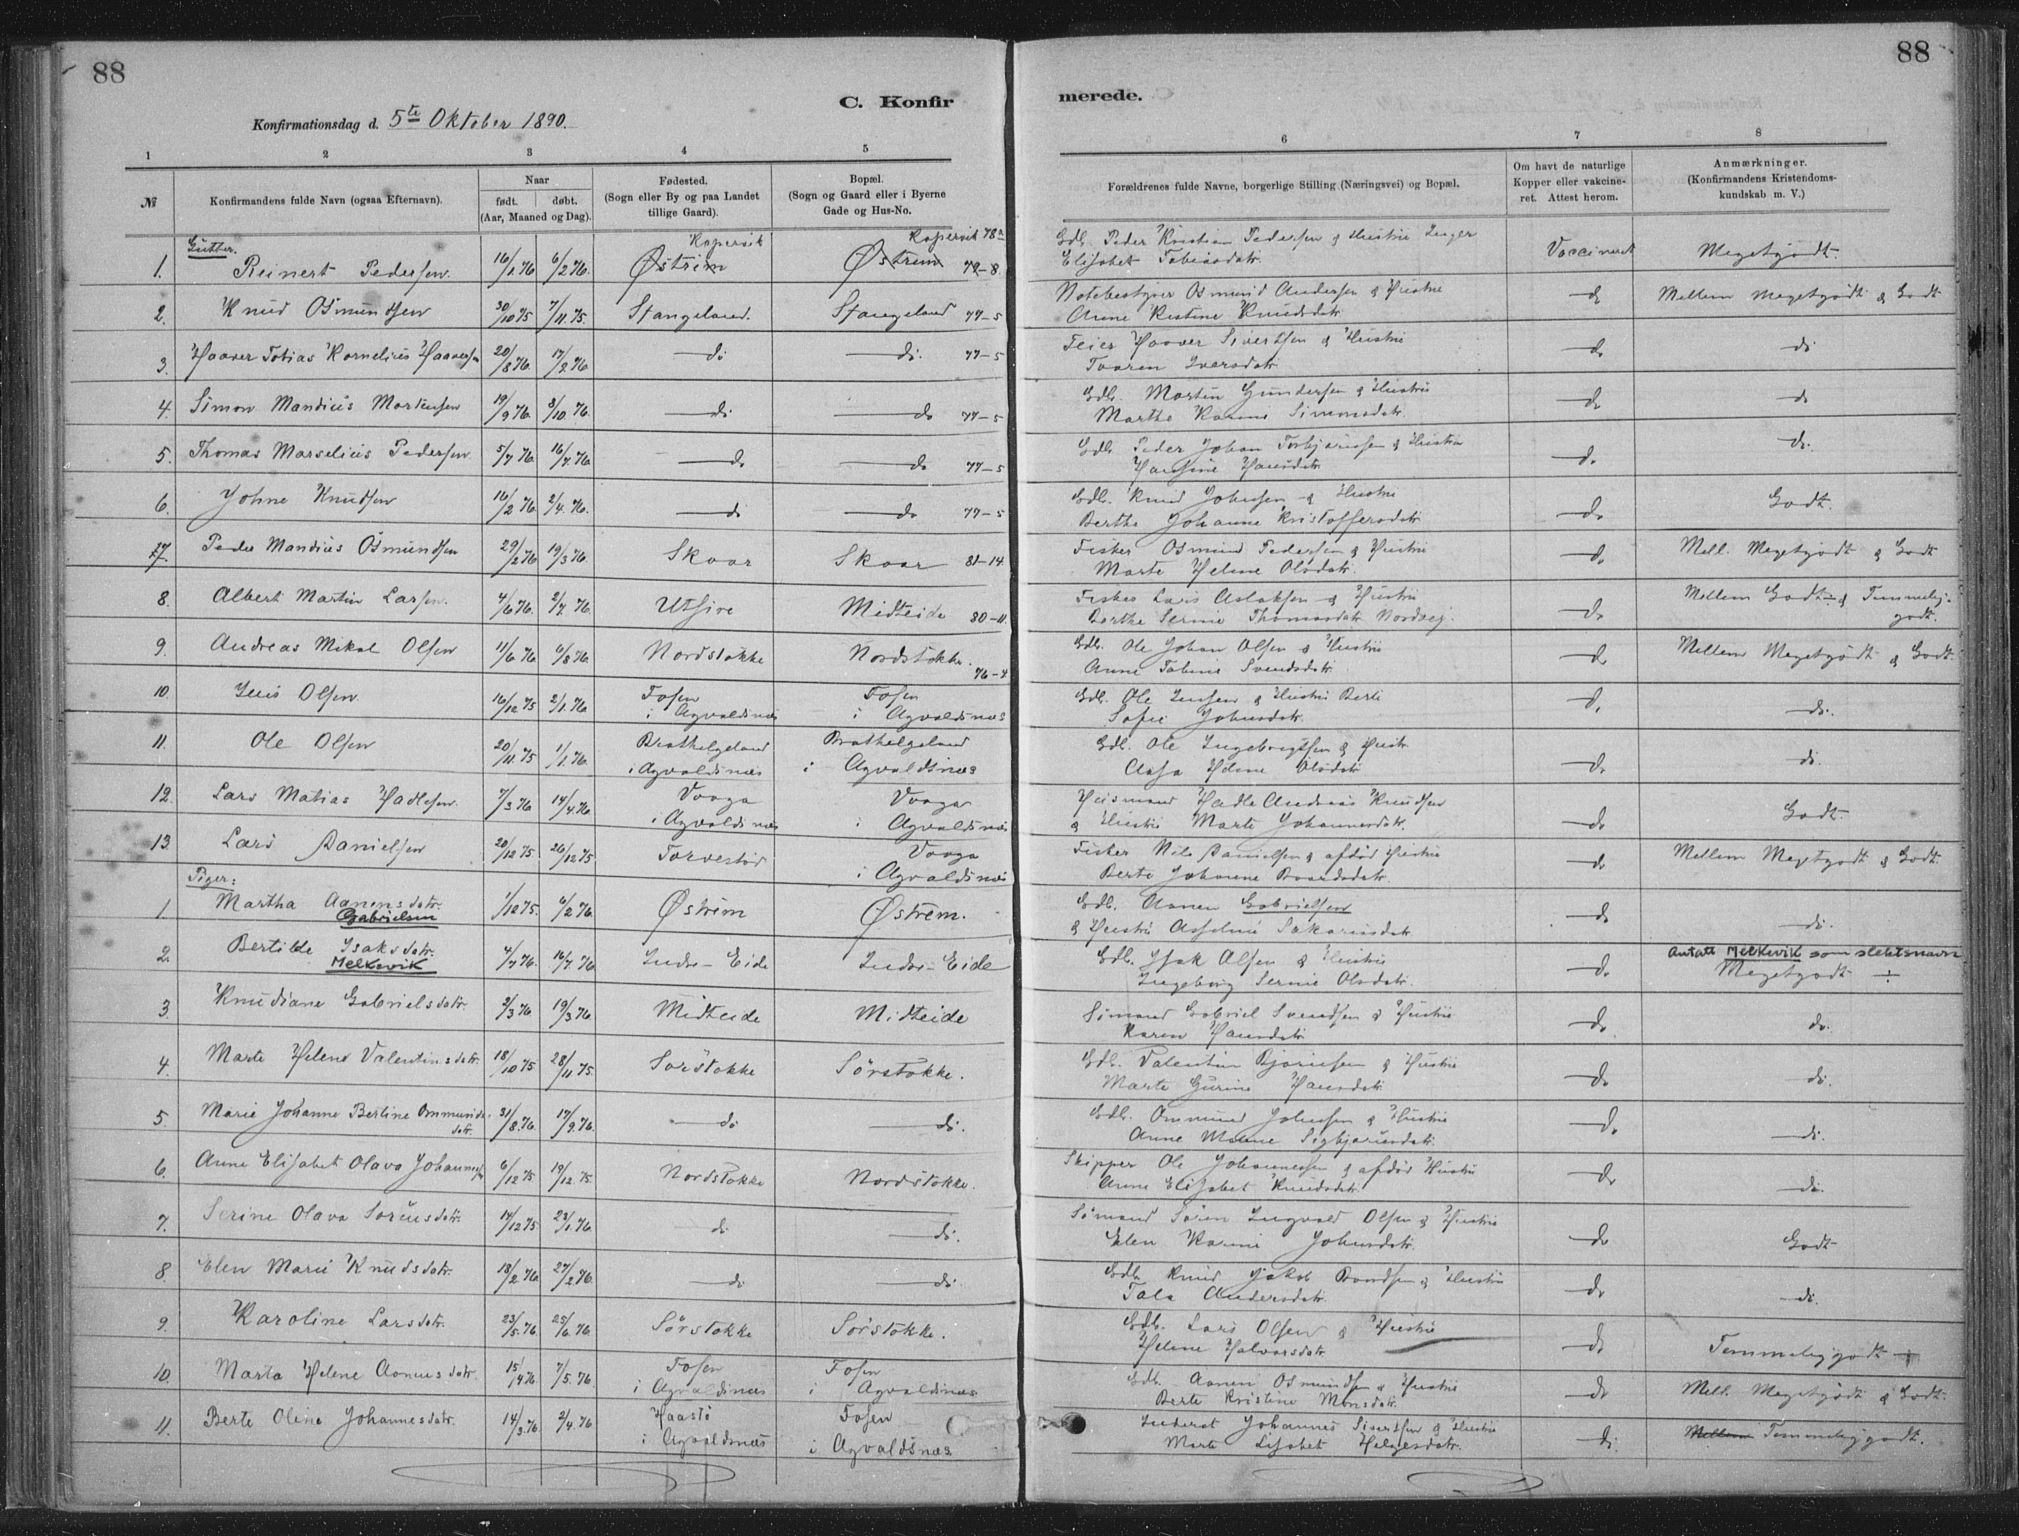 88
88
C. Konfir
merede.
Konfirmationsdag d. 5te Oktober 1890.
1 2 3 4 5 6 7 8
№ Konfirmandens fulde Navn (ogsaa Efternavn).
Naar
født. døbt.
(Aar, Maaned og Dag).
Fødested.
(Sogn eller By og paa Landet
tillige Gaard).
Bopæl.
(Sogn og Gaard eller i Byerne
Gade og Hus-No.
Forældrenes fulde Navne, borgerlige Stilling (Næringsvei) og Bopæl.
Om havt de naturlige
Kopper eller vakcine-
ret. Attest herom.
Anmærkninger.
(Konfirmandens Kristendoms-
kundskab m. V.)
Gutter.
Kopervik Kopervik 78a
1. Reinert Pedersen. 16/1 76 6/2 76. Østrem Østrem 79-8. Gdb. Peder Kristian Pedersen & Hustru Inger
Elisabet Tobiasdatr. Vaccineret Megetgodt.
2. Knud Osmundsen 30/10 75 7/11 75. Stangeland. Stangeland 77-5 Notebestyrer Osmund Andersen & Hustru
Anne Kistine Knudsdatr. do Mellem Megetgodt & Godt
3. Haaver Tobias Kornelius Haaversen 20/8 76. 17/9 76 do do. 77-5 Feier Haaver Sivertsen & Hustru
Taaren Iversdatr. do do
4. Simon Mandius Martensen 19/9 76. 8/10 76. do do 77-5 Gdb. Martin Gundersen & Hustru
Marthe Karine Simonsdatr. do do
5. Thomas Marselius Pedersen. 5/7 76. 16/7 76. do do 77-5 Gdb. Peder Johan Torbjørnsen & Hustru
Hansine Hansdatr. do do.
6. Johne Knudsen 16/2 76. 2/4 76. do do 77-5 Gdb. Knud Johnsen & Hustru
Berthe Johanne Kristoffersdatr. do Godt.
7. Peder Mandius Osmundsen 29/2 76. 19/3 76. Skaar Skaar 81-14 Fisker Osmund Pedersen & Hustru
Marte Helene Olsdatr. do Mell. Megetgodt & Godt
8. Albert Martin Larsen. 4/6 76. 2/7 76. Utsire Midteide 80-11. Fisker Lars Aslaksen & Hustru
Berthe Serine Thomasdatr. Nordvig. do Mellem Godt & Temmelig-
godt.
9. Andreas Mikal Olsen 11/6 76 6/8 76. Nordstokke Nordstokke. 76-4 Gdb. Ole Johan Olsen & Hustru
Anne Tobine Svendsdatr. do Mellem Megetgodt & Godt.
10 Jens Olsen 16/12 75 2/1 76. Fosen
i Agvaldsnæs Fosen
i Agvaldsnæs Gdb. Ole Jensen & Hustru Berte
Sofie Johnsdatr. do do.
11. Ole Olsen 20/11 75 1/1 76. Brathelgeland
i Agvaldsnæs Brathelgeland
i Agvaldsnæs Gdb. Ole Ingebrigtsen & Hustr.
Aasa Helene Olsdatr. do do.
12. Lars Matias Hadlesen. 7/3 76 14/4 76 Vaaga
i Agvaldsnæs Vaaga
i Agvaldsnæs Husmand Hadle Andreas Knudsen
& Hustru Marte Johannesdatr. do Godt.
13. Lars Danielsen 20/12 75 26/12 75 Torvestad Vaaga
i Agvaldsnæs Fisker Nils Danielsen & afdød Hustru
Berte Johanne Baardsdatr. do Mellem Megetgodt & Godt.
Piger:
1. Martha Aanensdatr.
Gabrielsen 1/12 75. 6/2 76. Østrem Østrem. Gdb. Aanen Gabrielsen
& Hustru Asseline Sakariasdatr. do do.
2. Bertilde Isaksdatr.
Melkevik 4/7 76. 16/7 76 Indre-Eide Indre-Eide Gdb. Isak Olsen & Hustru
Ingeborg Serine Olsdatr. do Antatt Melkevik som slektsnavn
Megetgodt ÷
3. Knudiane Gabrielsdatr. 2/3 76 19/3 76 Midteide Midteide Sømand Gabriel Svendsen & Hustru
Karen Hansdatr. do do.
4. Marte Helene Valentinsdatr. 18/10 75 28/11 75. Sørstokke Sørstokke. Gdb. Valentin Bjørnsen & Hustru
Marte Gurine Hansdatr. do do.
5. Marie Johanne Bertine Ommunds-
datr. 31/8 76. 17/9 76. do do. Gdb. Ommund Johnsen & Hustru
Anne Malene Sigbjørnsdatr. do do.
6. Anne Elisabet Olava Johannessen 6/12 75 19/12 75 Nordstokke Nordstokke. Skipper Ole Johannessen & afdød Hustru
Anne Elisabet Knudsdatr. do do.
7. Serine Olava Sørensdatr. 14/12 75 23/1 76 do do. Sømand Søren Ingvald Olsen & Hustru
Elen Karine Johnsdatr. do Godt
8 Elen Marie Knudsdatr. 18/2 76. 27/2 76. do do. Gdb. Knud Jakob Baardsen & Hustru
Tala Andersdatr. do do.
9. Karoline Larsdatr. 23/5 76. 25/6 76 Sørstokke Sørstokke. Gdb. Lars Olsen & Hustru
Helene Halvorsdatr. do Temmeliggodt +
10. Marta Helene Aanensdatr. 15/4 76 7/5 76. Fosen
i Agvaldsnæs Fosen
i Agvaldsnæs Gdb. Aanen Osmundsen & Hustru
Berte Kristine Monsdatr. do Mell. Megetgodt & Godt.
11. Berte Oline Johannesdatr. 14/3 76. 2/4 76 Haasto
i Agvaldsnæs Fosen
i Agvaldsnæs Inderst Johannes Sivertsen & Hustru
Marte Lisabet Helgesdatr. do Mellem Temmeliggodt.